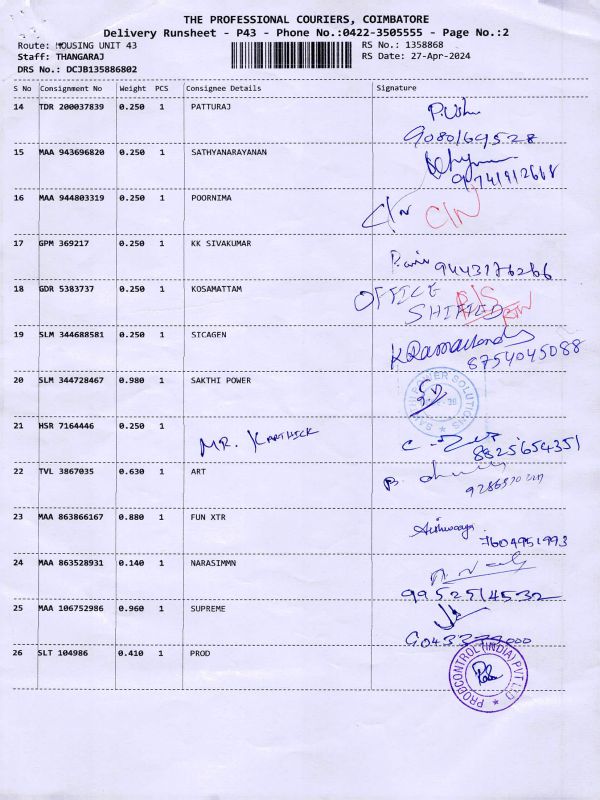 THE PROFESSIONAL COURIERS, COIMBATORE
Delivery Runsheet - P43 - Phone No.:0422-3505555 - Page No.:2
Route: HOUSING UNIT 43 RS No.: 1358868
Staff: THANGARAJ RS Date: 27-Apr-2024
DRS No.: DCJB135886802
S No Consignment No Weight PCS Consignee Details Signature
14 TDR 200037839 0.250 1 PATTURAJ
15 MAA 943696820 0.250 1 SATHYANARAYANAN
9741912668
16 MAA 944803319 0.250 1 POORNIMA
C/N C/N
17 GPM 369217 0.250 1 KK SIVAKUMAR
9443176266
18 GDR 5383737 0.250 1 KOSAMATTAM
OFFICE
SHIFTED
19 SLM 344688581 0.250 1 SICAGEN
8754045088
20 SLM 344728467 0.980 1 SAKTHI POWER
SAKTHI POWER SOLUTIONS
21 HSR 7164446 0.250 1
MR. KARTHICK
8825654351
22 TVL 3867035 0.630 1 ART
23 MAA 863866167 0.880 1 FUN XTR
Aishwarya
7604951993
24 MAA 863528931 0.140 1 NARASIMMN
9952514532
25 MAA 106752986 0.960 1 SUPREME
26 SLT 104986 0.410 1 PROD
PRODCONTROL (INDIA) PVT LTD